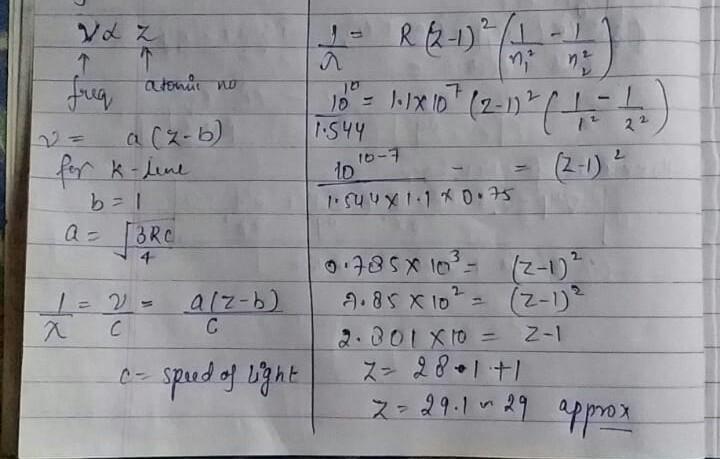 ν ∝ Z
↑ ↑
freq atomic no
ν = a(z-b)
for k-line
b = 1
a = √(3RC/4)
1/λ = ν/c = a(z-b)/c
c = speed of light
1/λ = R(z-1)² (1/n₁² - 1/n₂²)
10¹⁰/1.544 = 1.1×10⁷ (z-1)² (1/1² - 1/2²)
10¹⁰⁻⁷/1.544×1.1×0.75 - = (z-1)²
0.785×10³ = (z-1)²
7.85×10² = (z-1)²
2.801×10 = z-1
z = 28.1+1
z = 29.1 ~ 29 approx